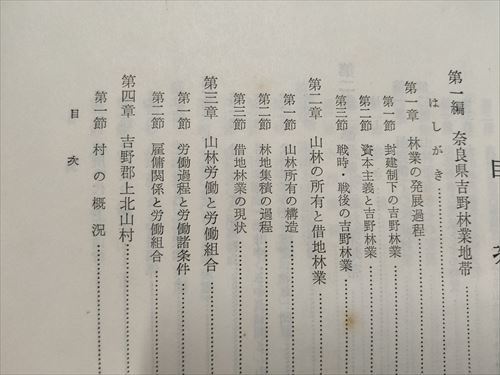 目
第一編 奈良県吉野林業地帯
はしがき
第一章 林業の発展過程
第一節 封建制下の吉野林業
第二節 資本主義と吉野林業
第三節 戦時・戦後の吉野林業
第二章 山林の所有と借地林業
第一節 山林所有の構造
第二節 林地集積の過程
第三節 借地林業の現状
第三章 山林労働と労働組合
第一節 労働過程と労働諸条件
第二節 雇傭関係と労働組合
第四章 吉野郡上北山村
第一節 村の概況
目次